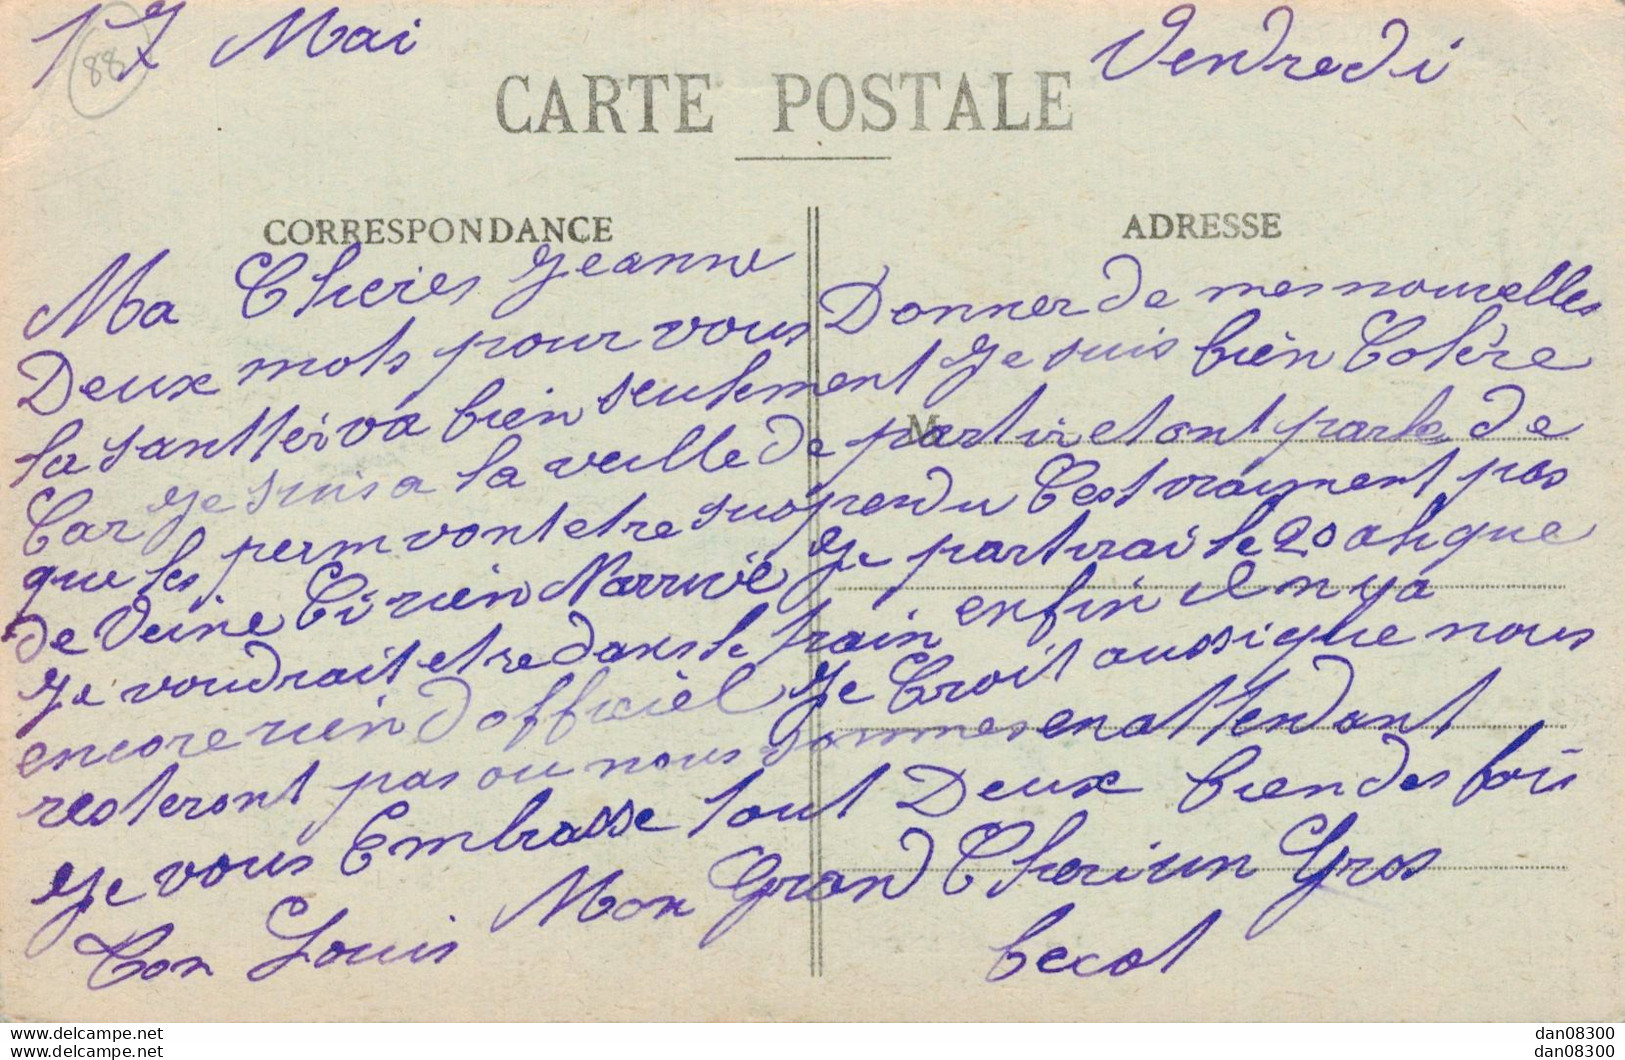 17 Mai Vendredi
88
CARTE POSTALE
CORRESPONDANCE
ADRESSE
M
Ma Cheries Jeanne
Deux mots pour vous Donner de mes nouvelles
la santtei va bien seulement Je suis bien Colère
Car Je suis a la veille de partir et ont parle de
que les perm vont etre suspendu C'est vraiment pas
de Veine Ci rien N'arrive Je partirai le 20 ali que
Je voudrait etre dans le train enfin il n y a
encore rien d officiel Je Croit aussi que nous
resteront pas ou nous sommes en attendant
Je vous Embrasse tout Deux bien des fois
Ton Louis Mon Grand Cheri un Gros
becot
delcampe.net
delcampe.net
dan08300
dan08300